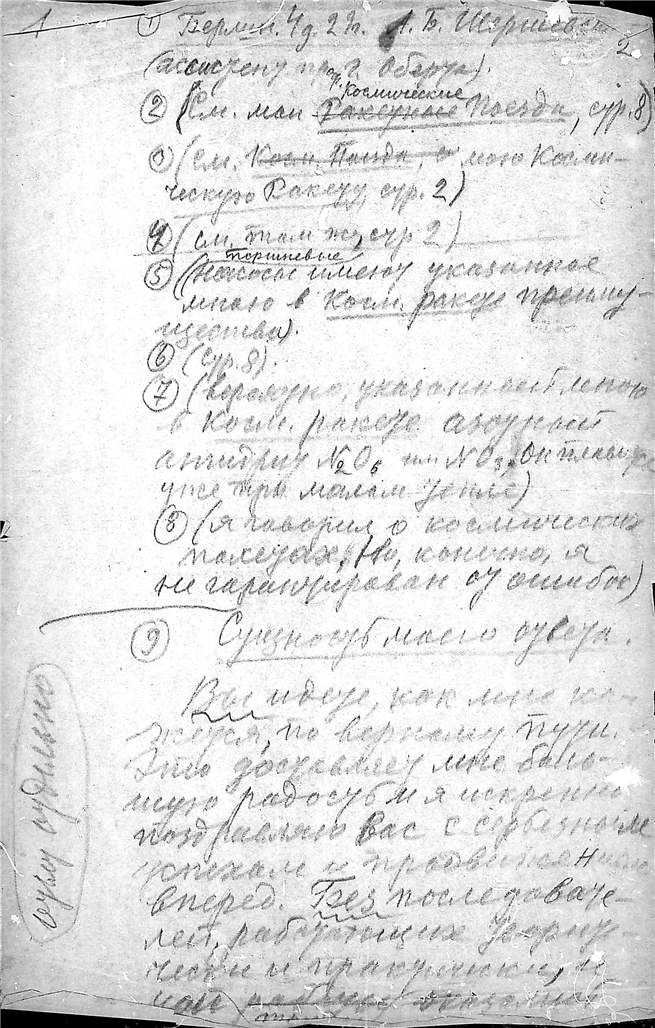 1
① Берлин. 4 д. 27 г. А. Б. Шершевск
2
(ассистенту проф. г. Оберта).
Космические
② (См. мои Ракетные Поезда, стр. 8)
③ (см. Косм. Поезда, с мою Косми-
ческую Ракету, стр. 2)
④ (см. там же, стр 2)
поршневые
⑤ (насосы имеют указанное
мною в Косм. ракете преиму-
щества).
⑥ (стр. 8).
⑦ (вероятно, указанный мною
в Косм. ракете азотный
ангидрид N2O5 или NO3. Он плавится
уже при малом тепле)
⑧ (я говорил о космических
полетах, но, конечно, я
не гарантирован от ошибок)
⑨ Сущность моего ответа.
Вы идете, как мне ка-
жется, по верному пути.
Это доставляет мне боль-
шую радость и я искренно
поздравляю Вас с серьезным
успехом и продвижением
вперед. Без последовате-
лей, работающих теорети-
чески и практически, и
оказалась
отдельно